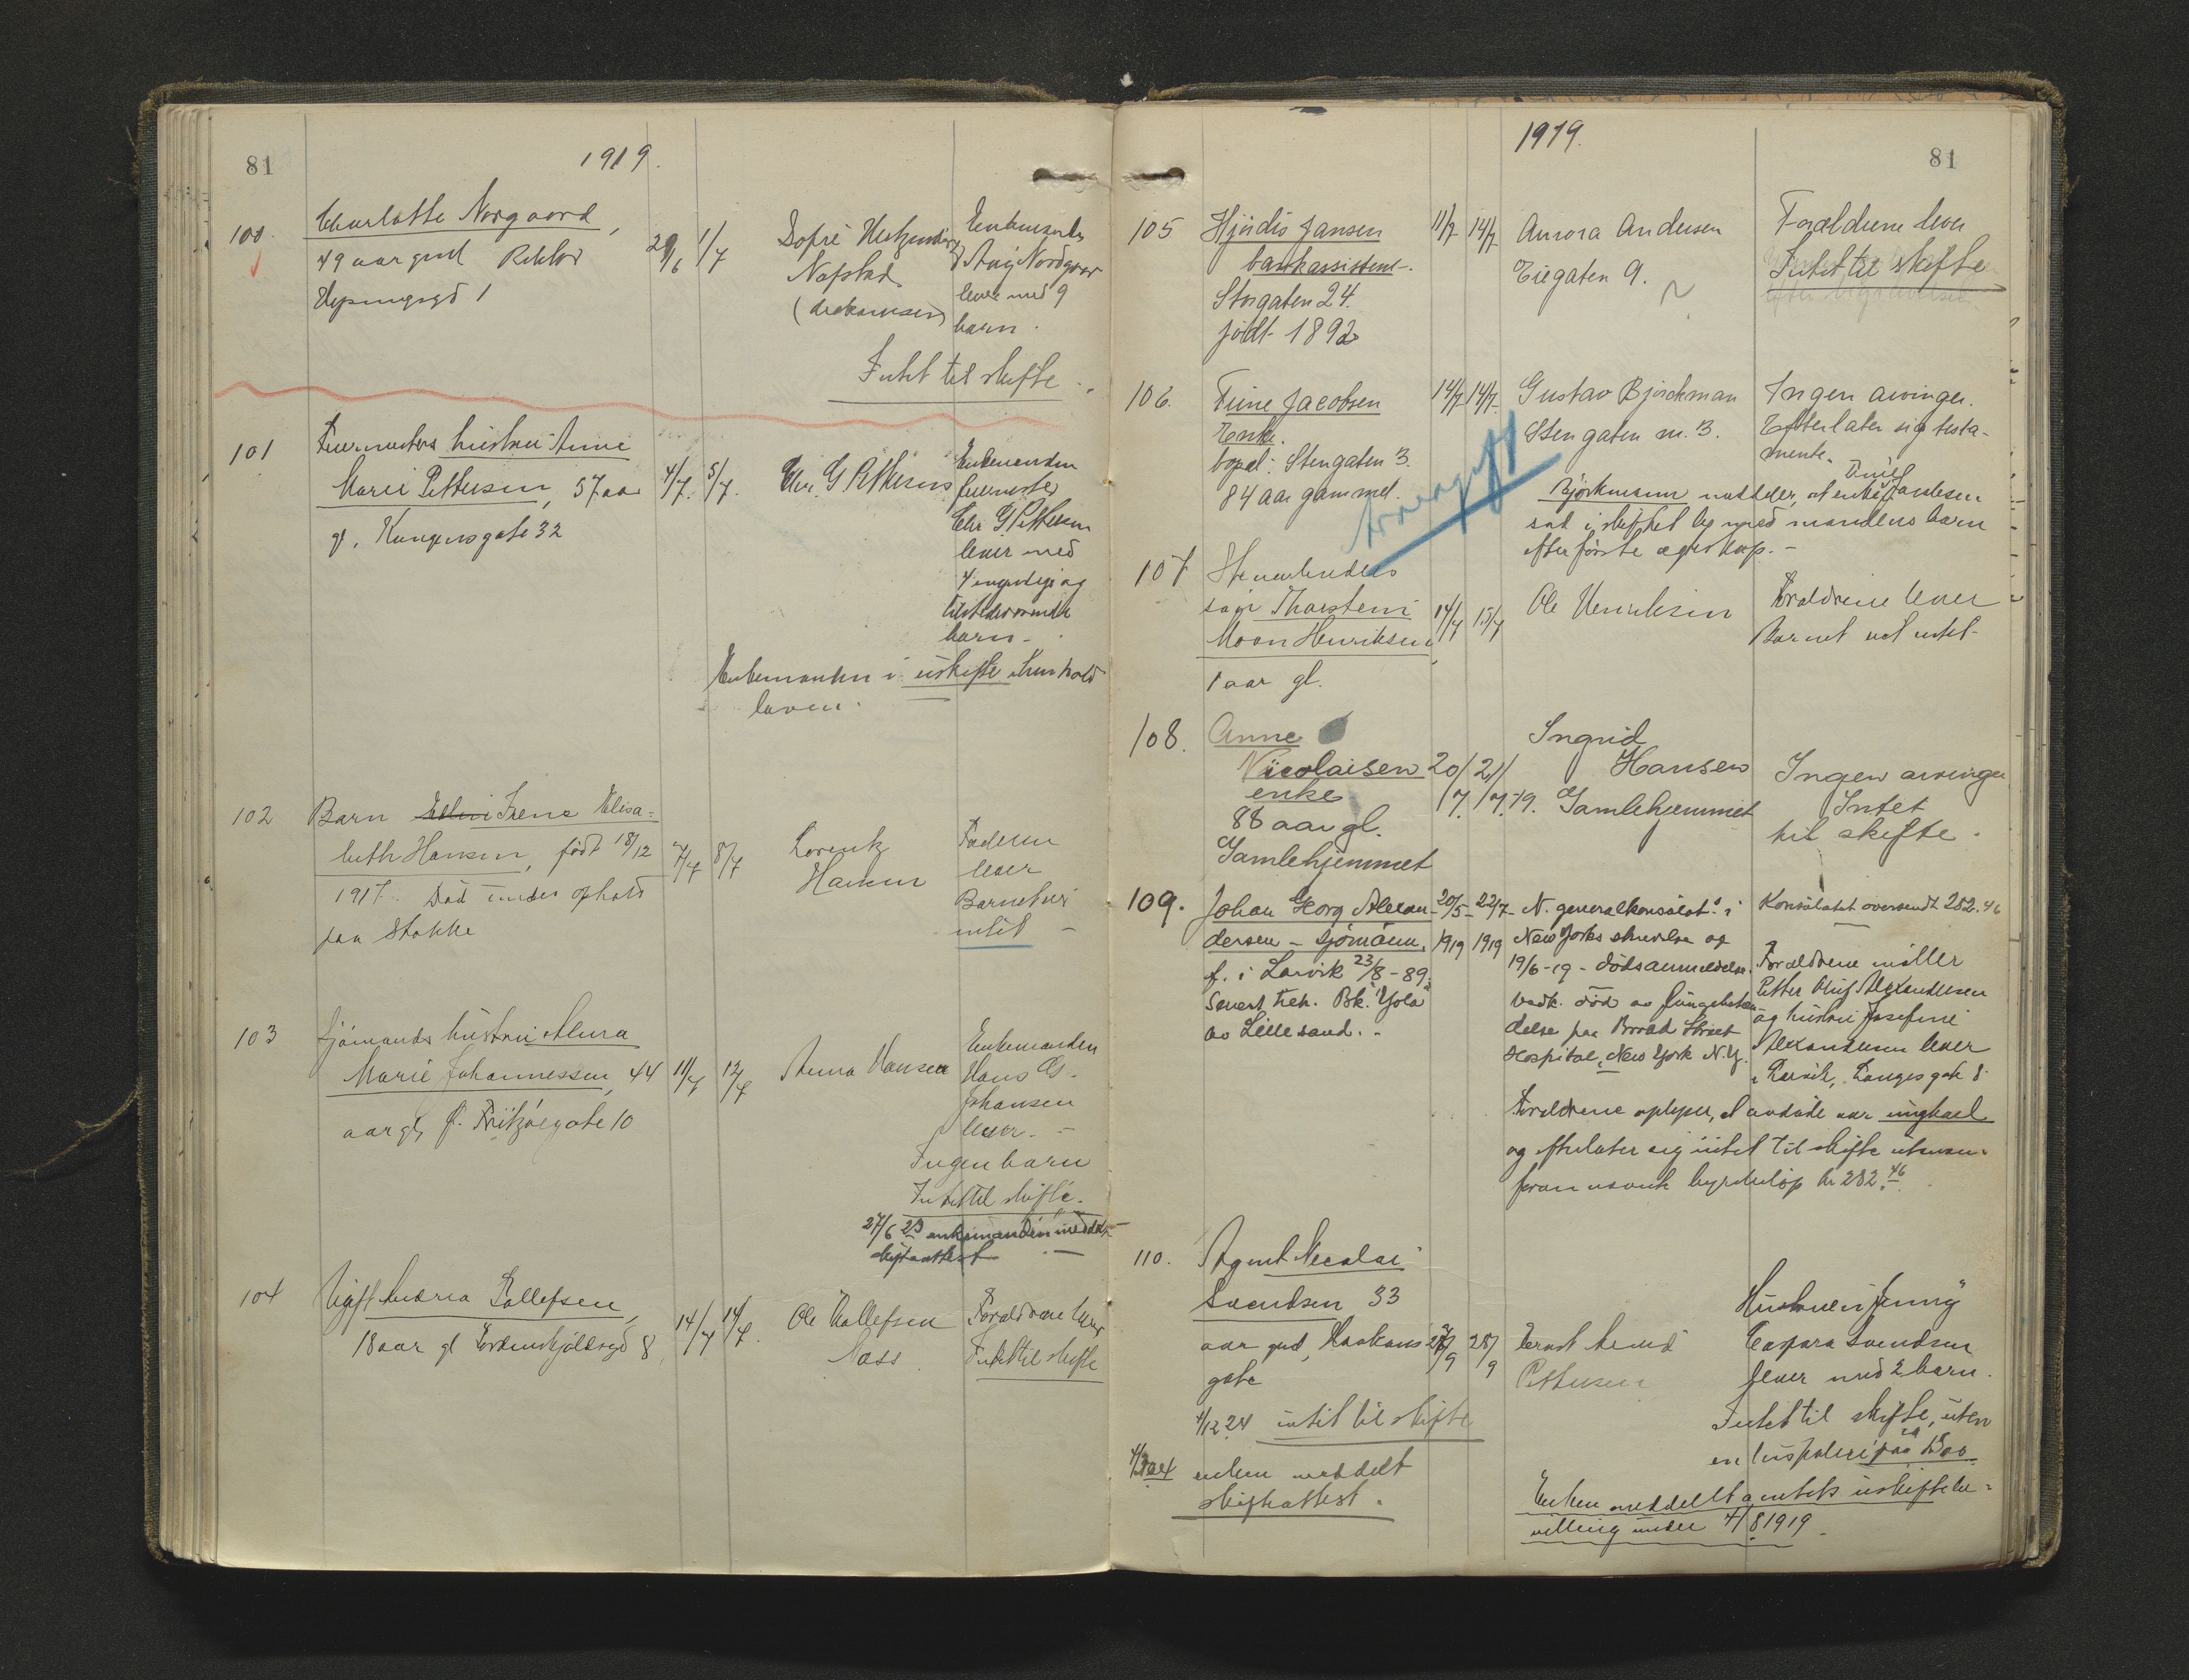 81
1919.
100.
Charlotte Norgaard,
49 aar gml Rektor
1
29/6 1/7
Nafstad
Enkemanden
Aug Nordgaar
lever med 9
barn.
Intet til skifte
101
hustru Anne
Marie Pettersen, 57 aar
gl. Kongensgate 32
4/7. 5/7.
Chr. G Pettersen
Enkemanden
Chr G Pettersen
lever med
4 myndige og
tilstedeværende
barn.
Enkemanden i uskifte i henhold
loven.
102
Barn Irene Elisa-
beth Hansen, født 18/12
1917. Død under ophold
paa Stokke
7/7 8/7
Lorentz
Hansen
Faderen
lever
Barnet eier
intet
103
Sjømands hustru Alma
Marie Johannessen, 44
aar gl, Fritzøegate 10
11/7 12/7
Anna Hansen
Enkemanden
Hans
Johansen
lever.
Ingen barn
Intet til skifte.
27/6 23 enkemanden meddelt
skifteattest
104
Ugift Andrea Rollefsen,
18 aar gl Tordenskjoldsgd 8
14/7 14/7.
Ole Rollefsen
Næss
Forældrene lever
Intet til skifte
1919.
81
105
Hjørdis Jansen
bankassistent.
Storgaten 24.
født 1892
11/7 14/7
Aurora Andersen
Eiegaten 9.
Forældrene lever
Intet til skifte
106.
Tine Jacobsen
Enke.
bopæl: Stengaten 3.
84 aar gammel.
14/7 14/7
Gustav Bjørckman
Stengaten nr. 3.
Ingen arvinger.
Efterlater sig testa-
mente.
Bjørkmann meddeler, at enkefru Jacobsen
sad i uskiftet bo med mandens barn
efter første ægteskap.
107
søn Thorstein
Moon Henriksen
1 aar gl.
14/7 15/7
Ole Henriksen
Forældrene lever
Barnet eet intet.
108.
Anne
Nicolaisen
enke
88 aar gl.
Gamlehjemmet
20/7. 21/7.-19.
Ingrid
Hansen
Gamlehjemmet
Ingen arvinger
Intet
til skifte.
109.
Johan Georg Alexan-
dersen - sjømann.
f. i Larvik 23/8-89.
Senest tilh. Bk. "Yola"
av Lillesand.
20/5- 22/7-
1919 1919
N. generalkonsulat i
New Yorks skrivelse av
19/6-19 - dødsanmeldelse.
Vedk. død av lungebeten-
delse paa Broad Street
Hospital, New York N.Y.
Konsulatet oversendt 282.46
Forældrene møller
Petter Oluf Alexandersen
og hustru Josefine
Alexandersen lever
i Larvik, Langesgate 8.
Forældrene oplyser, at avdøde var ungkarl
og efterlater sig intet til skifte utenom
foran nævnte hyrebeløp kr 282.46
110.
Agent Nicolai
Svendsen 33
aar gml, Haakons
gate
28/9
Ernst
Pettersen
Hustruen Jenny
Caspara Svendsen
lever med 2 barn.
Intet til skifte, uten
en livspolice
4/12 24 intet til skifte
enken meddelt
skifteattest.
Enken meddelt amtets uskiftebe-
villing under 4/8 1919.